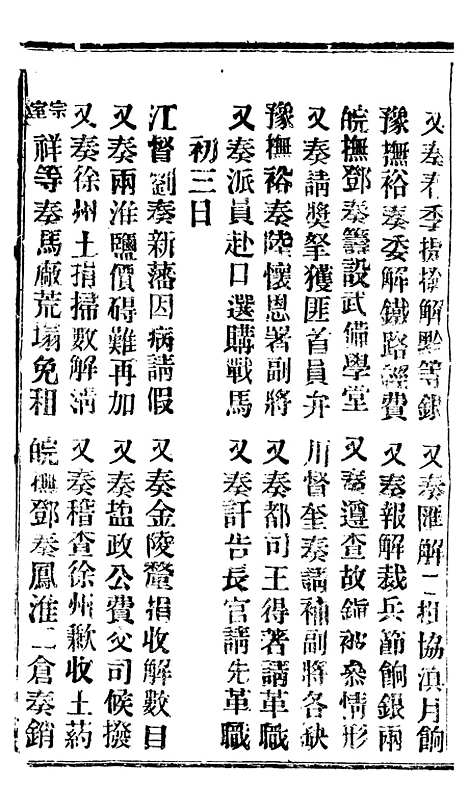 又奏春季撥條解黔等銀　又奏匯解二相協滇月餉
豫撫裕奏委解鐵路經費　又奏報解裁兵節餉銀兩
皖撫鄧奏籌設武備學堂　又奏遵查故鎮被參情形
又奏請獎拏獲匪首員弁　川督奎奏請補副將各缺
豫撫裕奏陸懷恩署副將　又奏都司王得著請革職
又奏派員赴口選購戰馬　又奏訐告長官請先革職
初三日
江督劉奏新藩因病請假　又奏金陵釐捐收解數目
又奏兩淮鹽價碍難再加　又奏盐政公費交司候撥
又奏徐州土捐掃數解清　又奏稽查徐州歉收土药
宗室祥等奏馬廠荒塌免租　皖撫鄧奏鳳淮二倉奏銷